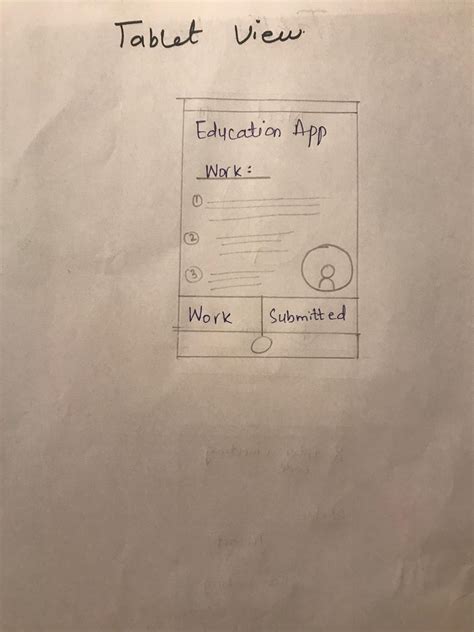 Tablet View
Education App
Work:
1
2
3
Work
Submitted